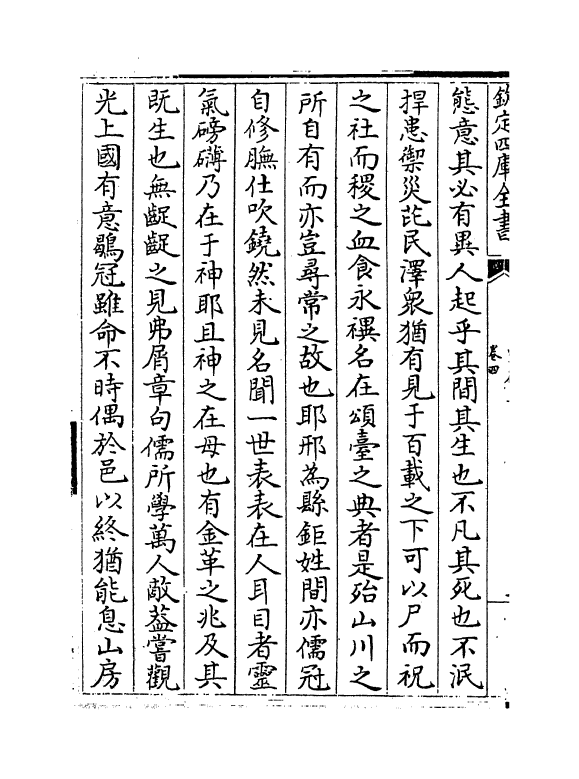 欽定四庫全書
卷四
態意其必有異人起乎其間其生也不凡其死也不泯
捍患禦災芘民澤衆猶有見于百載之下可以尸而祝
之社而稷之血食永禩名在頌臺之典者是殆山川之
所自有而亦豈尋常之故也耶邢為縣鉅姓間亦儒冠
自修膴仕吹鐃然未見名聞一世表表在人耳目者靈
氣磅礴乃在于神耶且神之在母也有金革之兆及其
既生也無齪齪之見弗屑章句儒所學萬人敵葢嘗觀
光上國有意鶡冠雖命不時偶於邑以終猶能息山房